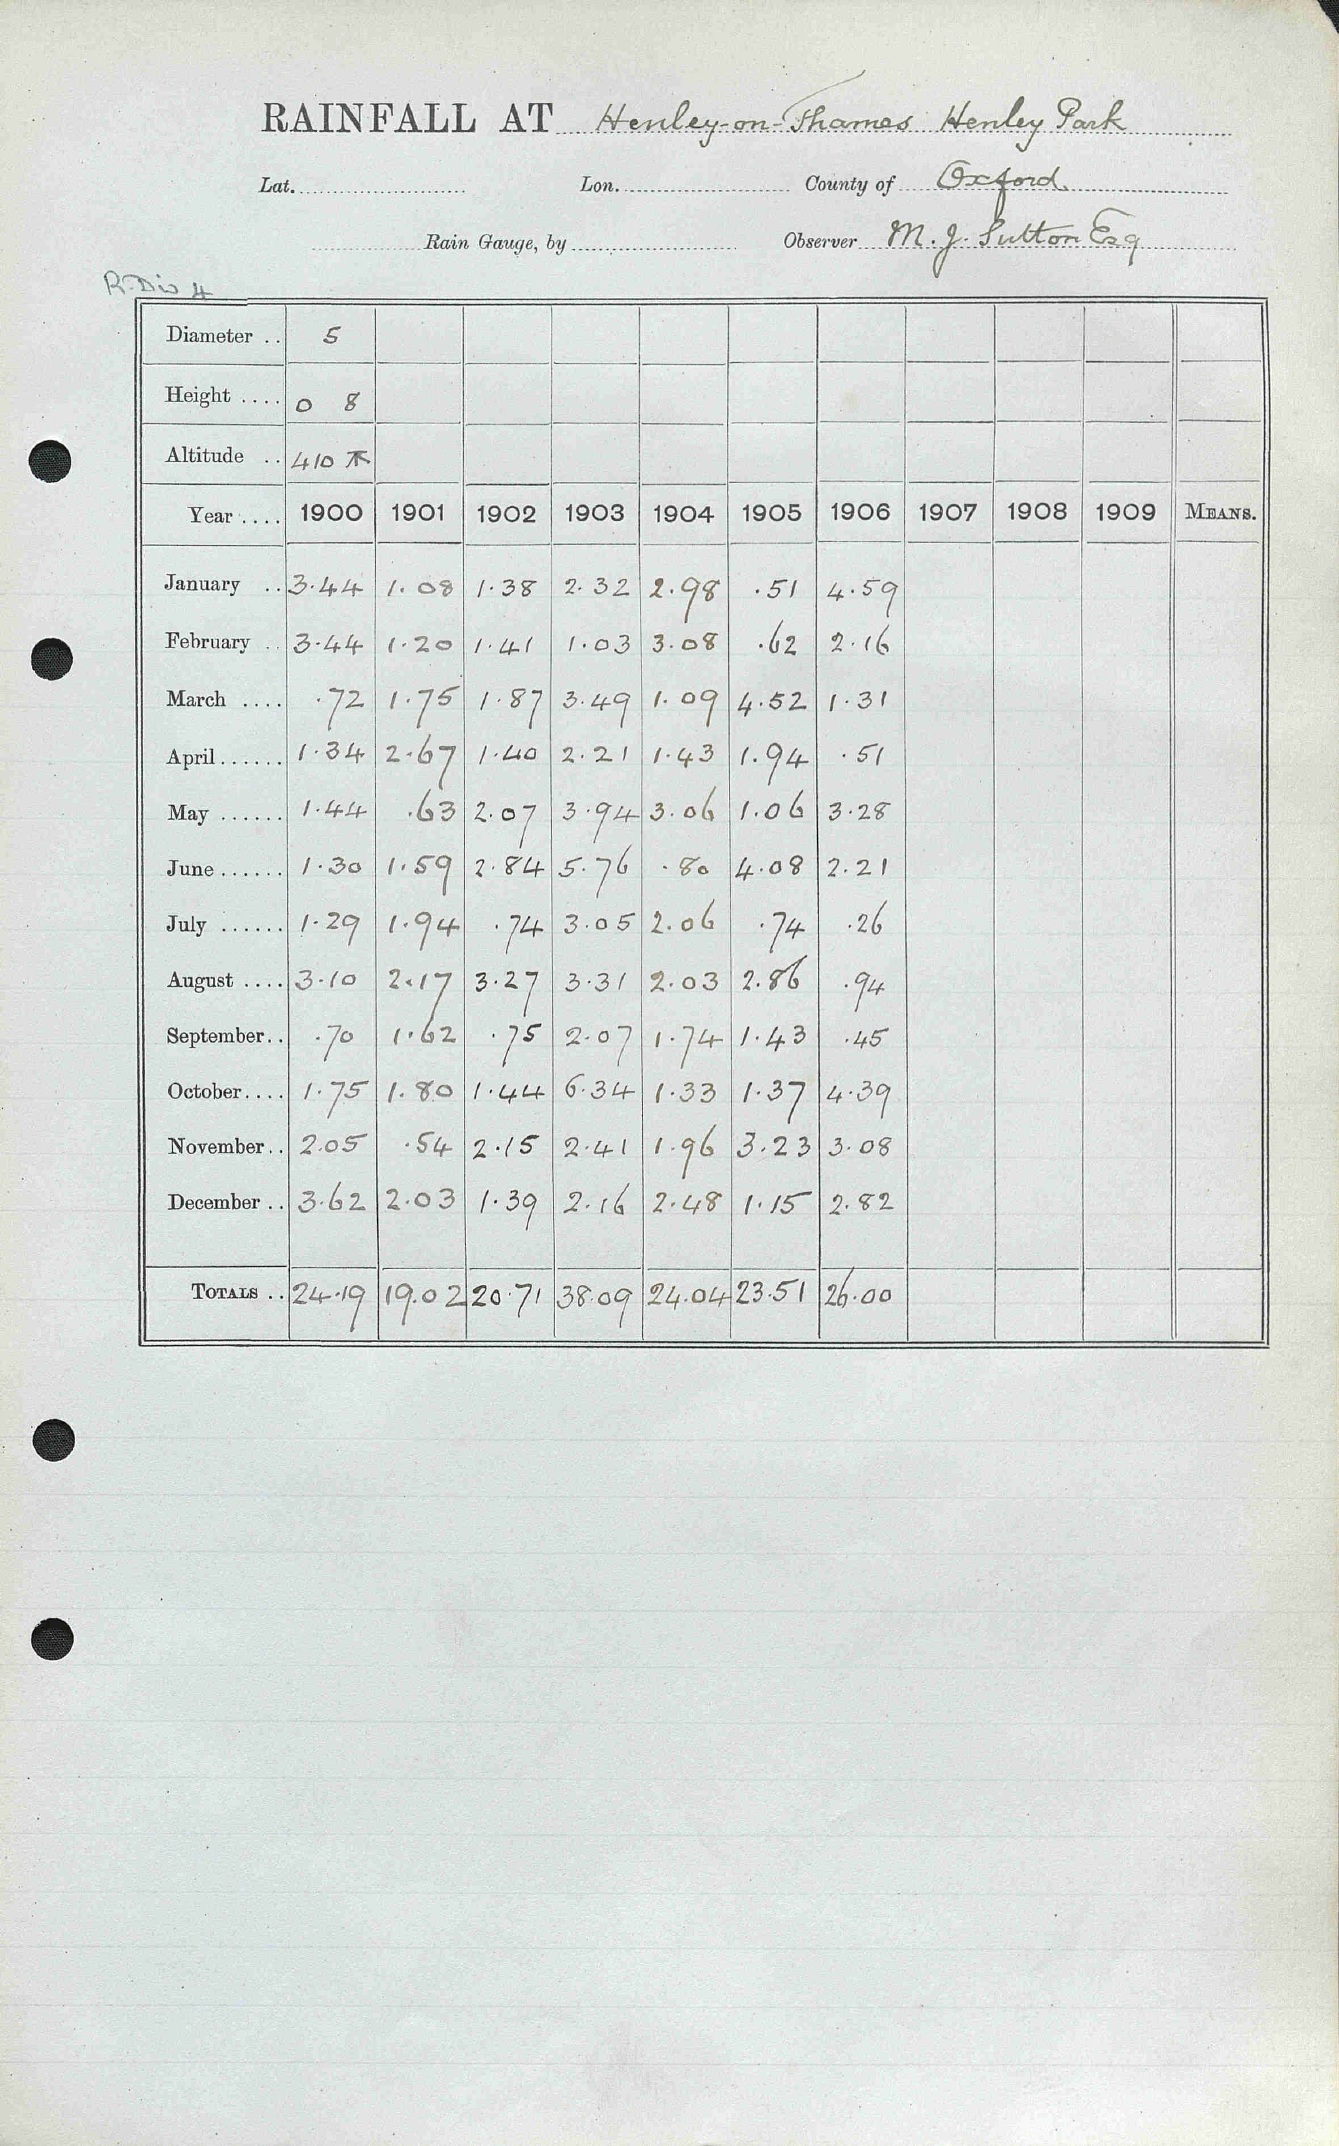 RAINFALL AT Henley-on-Thames Henley Park
Lat. Lon. County of Oxford.
Rain Gauge, by Observer M. J. Sutton Esq
R. Div 4
Diameter .. 5
Height .... 0 8
Altitude .. 410
Year .... 1900 1901 1902 1903 1904 1905 1906 1907 1908 1909 MEANS.
January .. 3.44 1.08 1.38 2.32 2.98 .51 4.59
February .. 3.44 1.20 1.41 1.03 3.08 .62 2.16
March .... .72 1.75 1.87 3.49 1.09 4.52 1.31
April ...... 1.34 2.67 1.40 2.21 1.43 1.94 .51
May ...... 1.44 .63 2.07 3.94 3.06 1.06 3.28
June ...... 1.30 1.59 2.84 5.76 .80 4.08 2.21
July ...... 1.29 1.94 .74 3.05 2.06 .74 .26
August .... 3.10 2.17 3.27 3.31 2.03 2.86 .94
September.. .70 1.62 .75 2.07 1.74 1.43 .45
October.... 1.75 1.80 1.44 6.34 1.33 1.37 4.39
November.. 2.05 .54 2.15 2.41 1.96 3.23 3.08
December .. 3.62 2.03 1.39 2.16 2.48 1.15 2.82
TOTALS .. 24.19 19.02 20.71 38.09 24.04 23.51 26.00